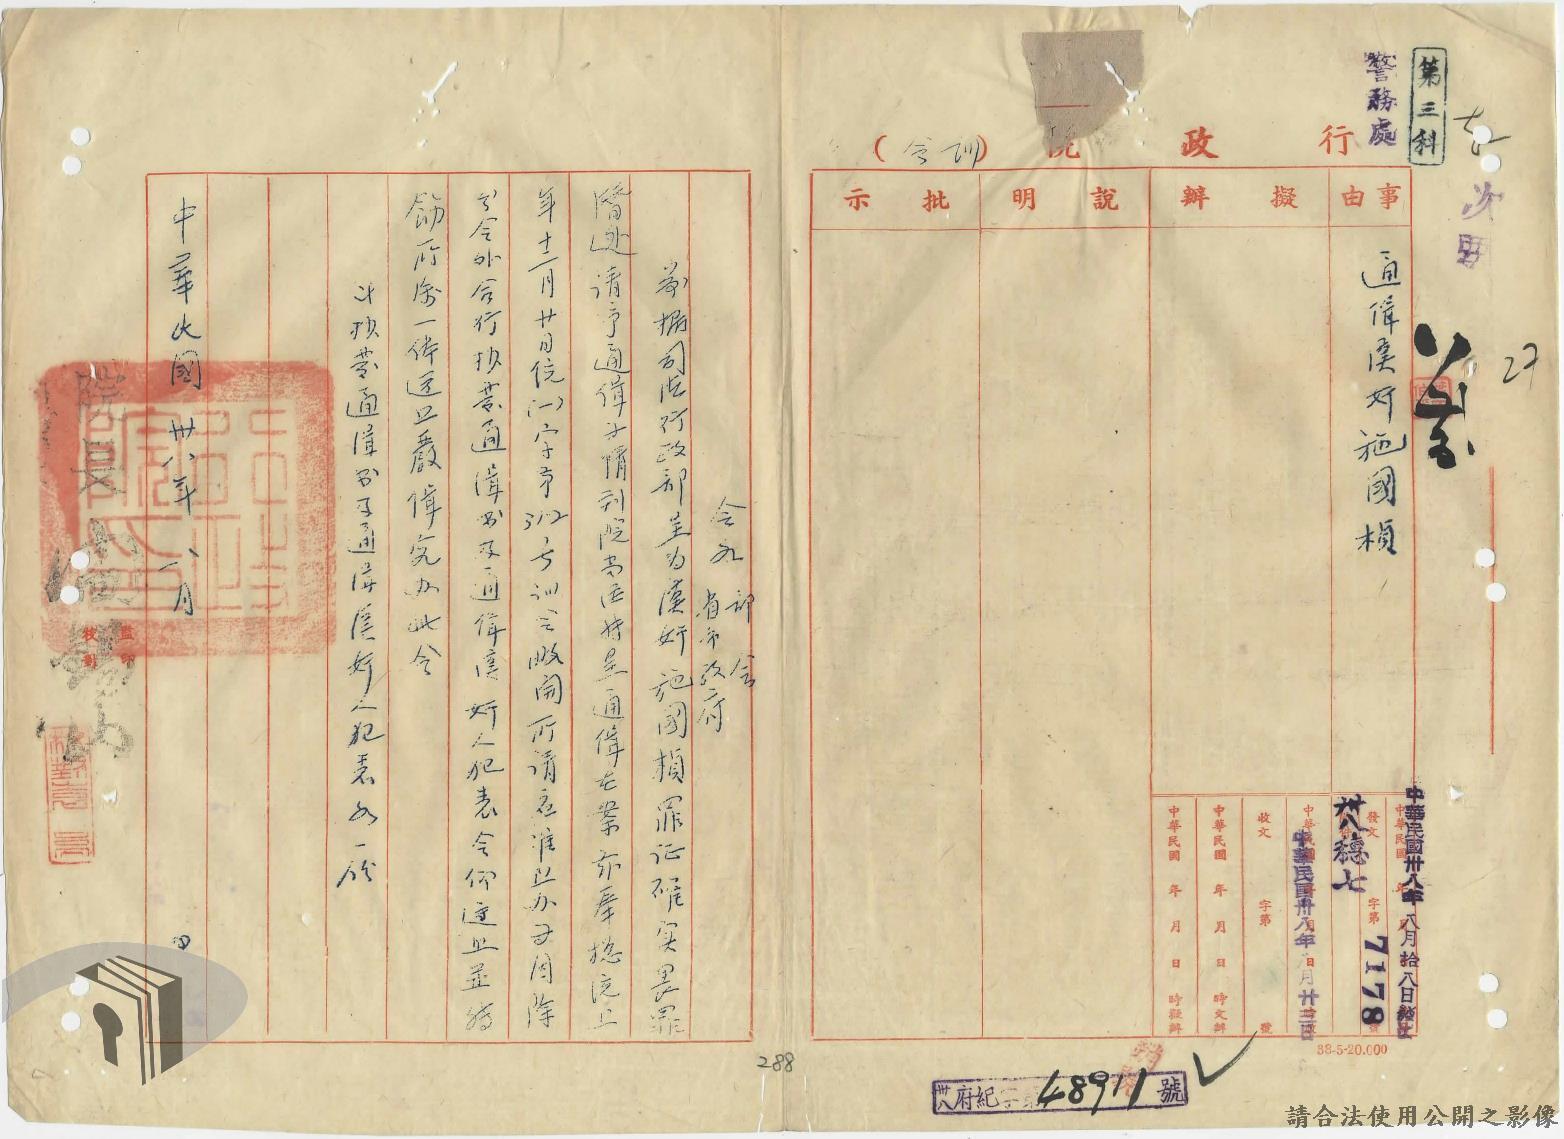 第三科
警務處
次要
27
行政院（訓令）
事由
擬辦
說明
批示
通緝漢奸施國楨
中華民國卅八年八月拾八日發出
發文
卅八穗七
字第
7178
號
中華民國卅八年 月廿三日
收文
字第
號
中華民國 年 月 日 時交辦
中華民國 年 月 日 時擬辦
38-5-20.000
令各部會
省市政府
案據司法行政部呈為漢奸施國楨罪証確實畏罪
潛逃請予通緝等情到院當經轉呈通緝在案茲奉總統上
年十二月廿日統(一)字第312號訓令略開所請應准照辦等因除
分令外合行抄發通緝書及通緝漢奸人犯表令仰遵照並轉
飭所屬一體遵照嚴緝究办此令
計抄發通緝書及通緝漢奸人犯表各一份
中華民國卅八年八月 日
院長閻錫山
監印
校對
288
卅八府紀字第48911號
請合法使用公開之影像